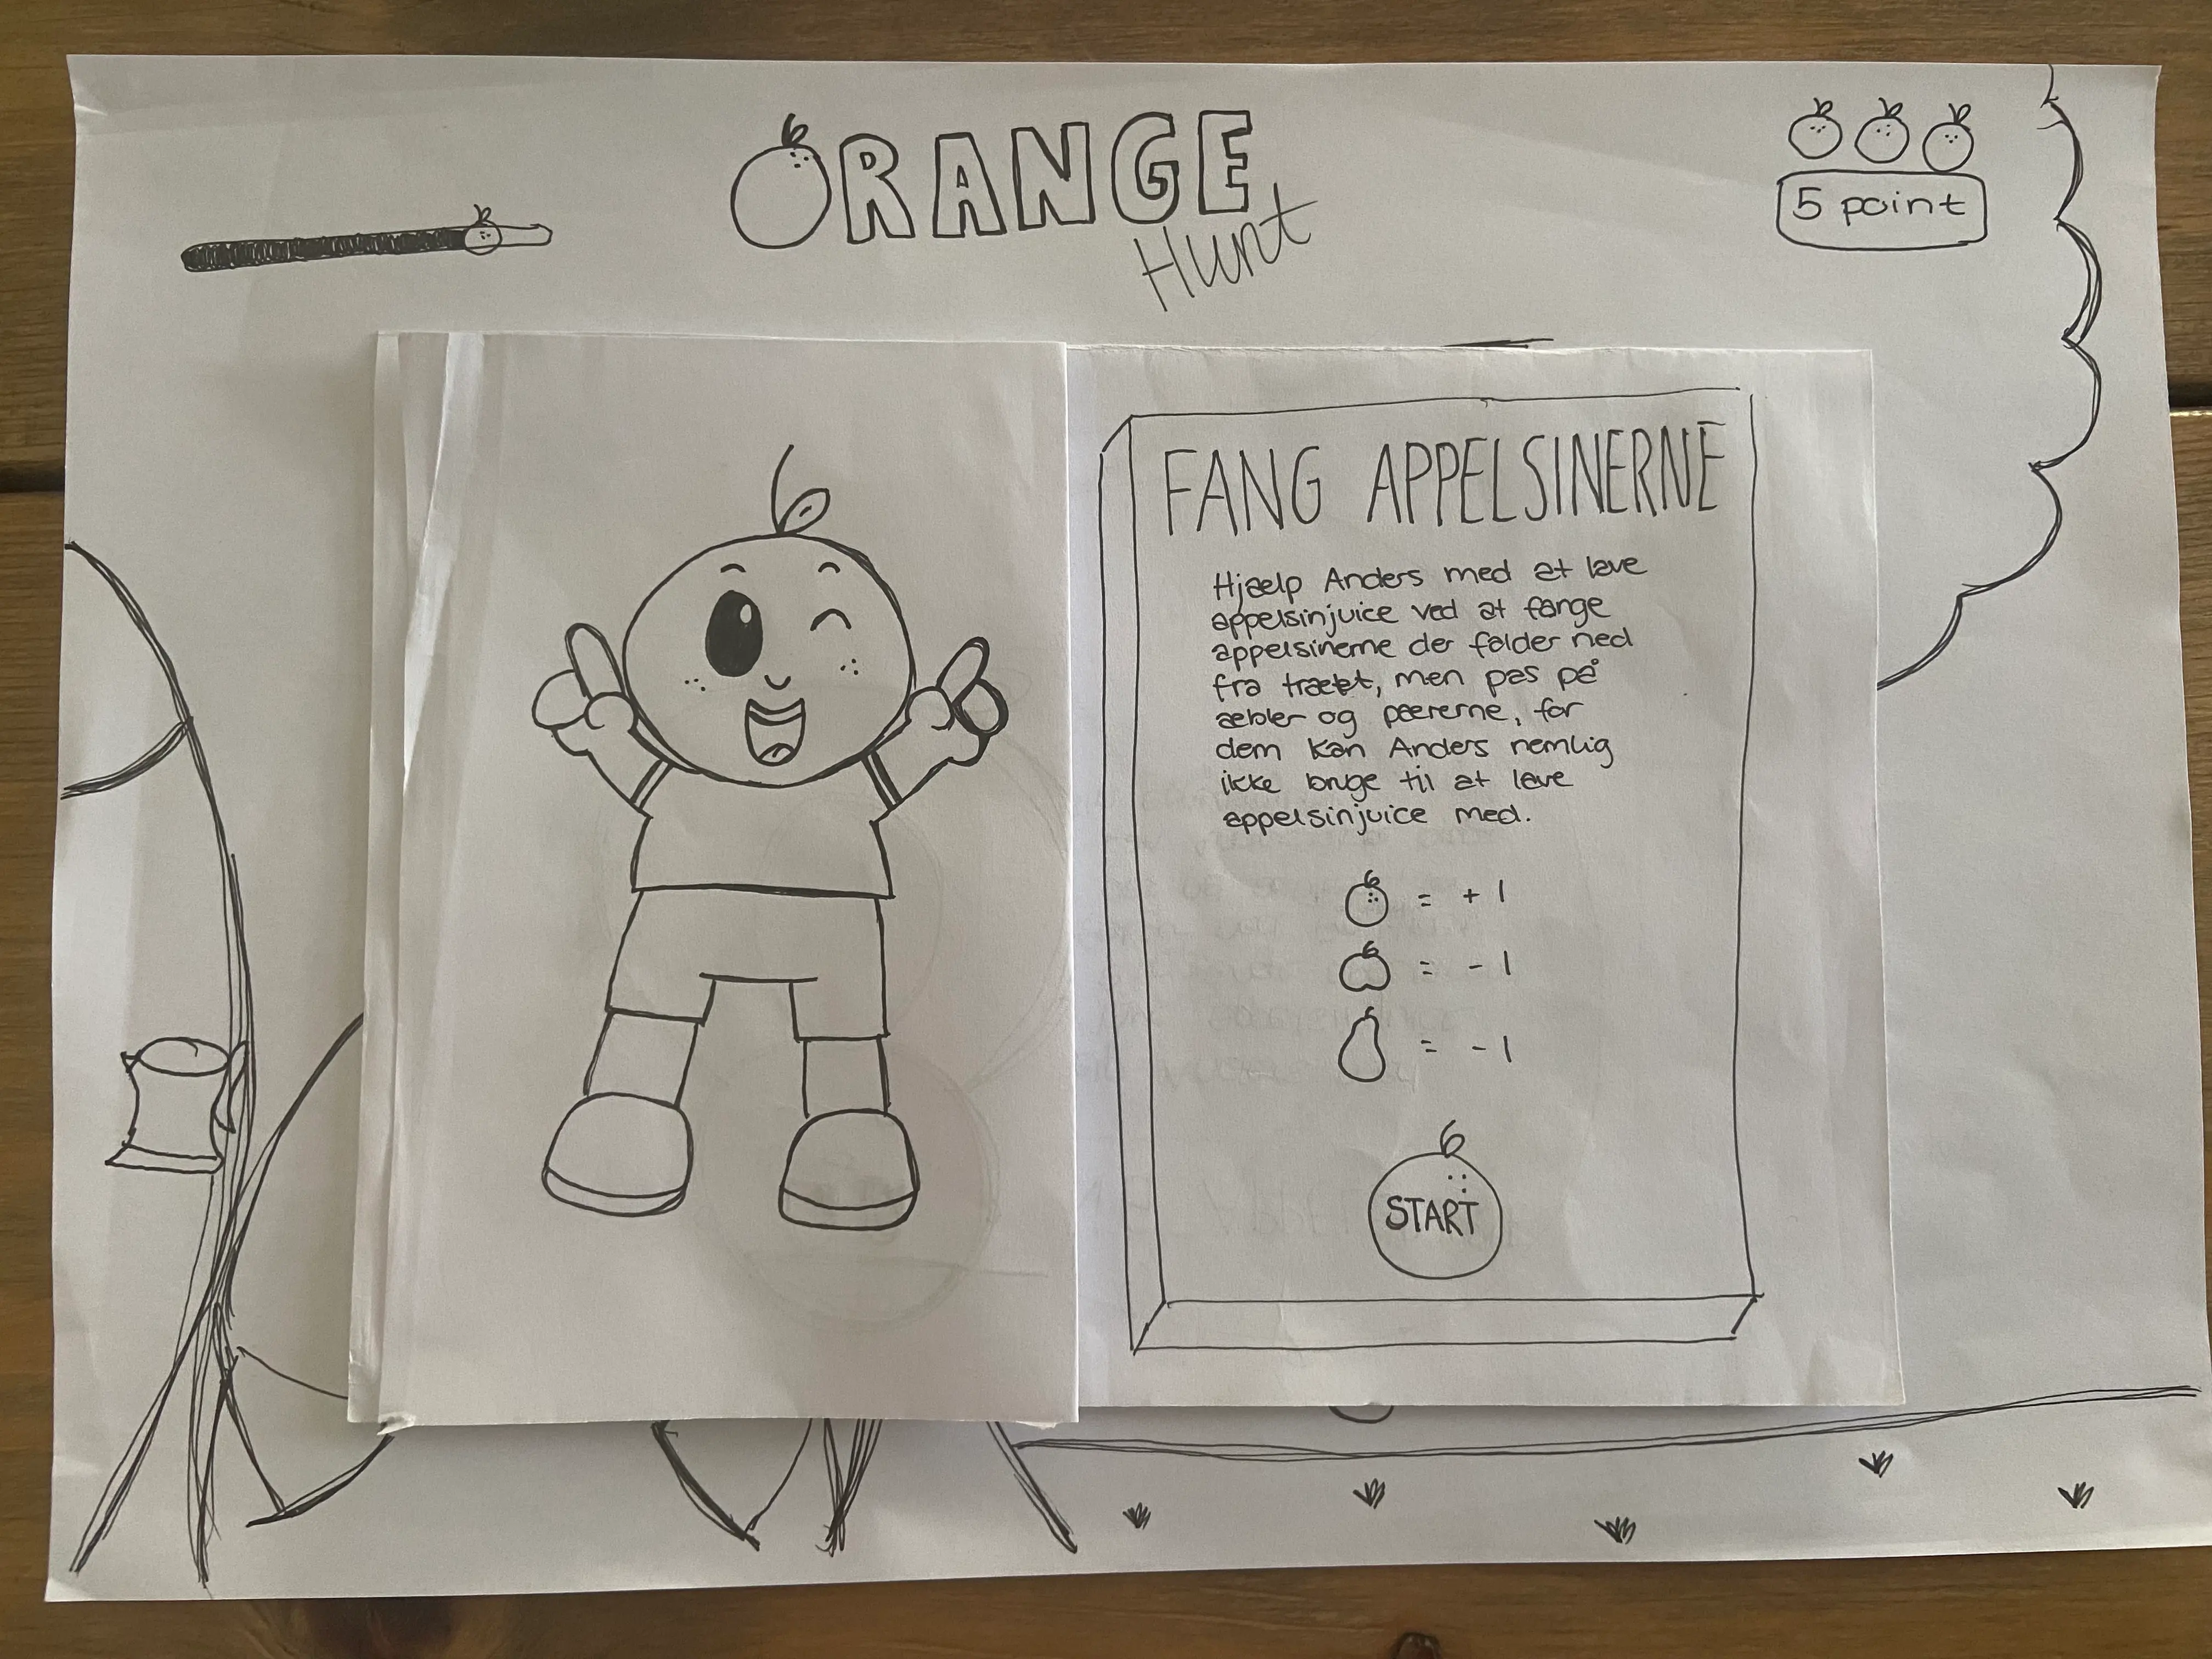 ORANGE
Hunt
5 point
FANG APPELSINERNE
Hjælp Anders med at lave
appelsinjuice ved at fange
appelsinerne der falder ned
fra træet, men pas på
æbler og pærerne, for
dem kan Anders nemlig
ikke bruge til at lave
appelsinjuice med.
= + 1
= - 1
= - 1
START